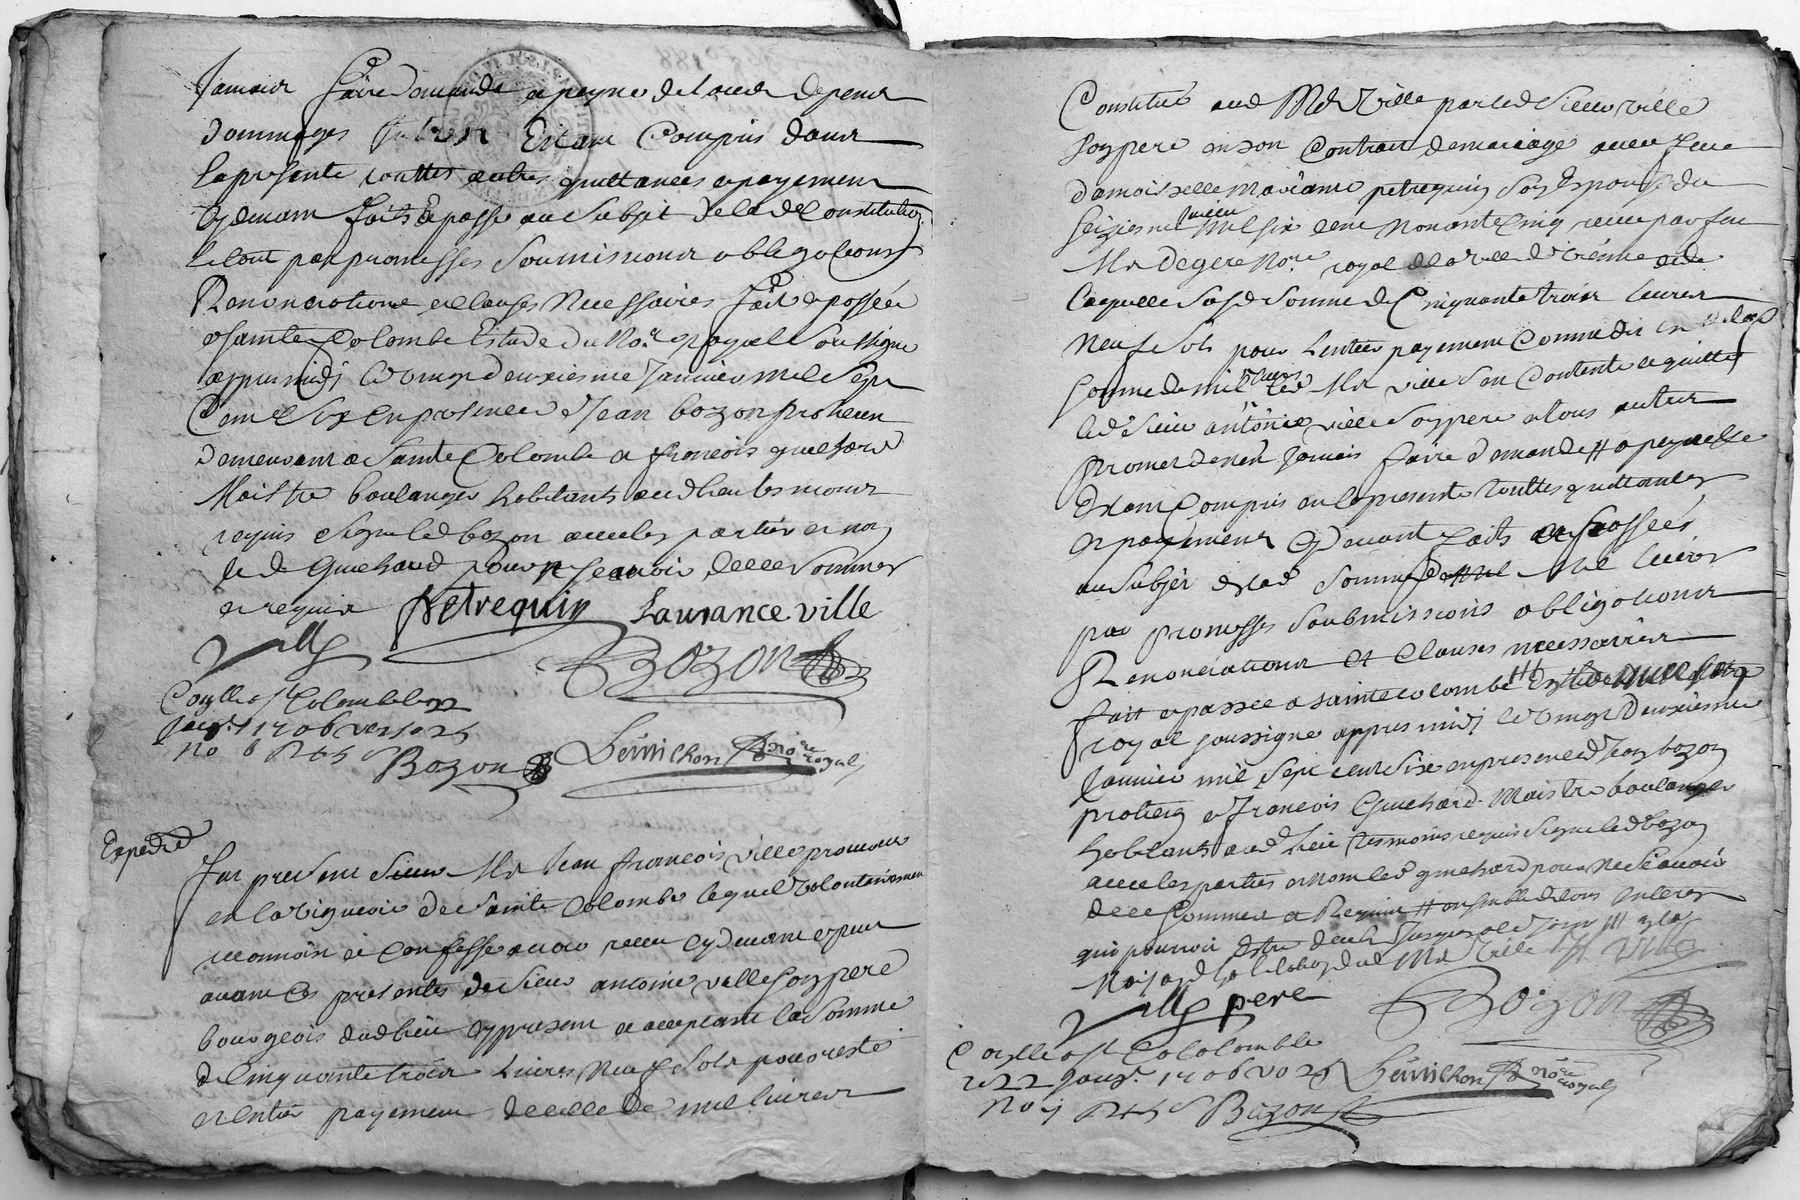 Jamais faire demande a peyne de tous depens
dommages Estant Compris dans
la presente touttes autres quittances et payements
Cydevant faits et passé au Subjet de lad Constitution
le tout par promesses Soumissions obligations
Renonciations et Clauses Necessaires fait et passée
a Sainte Colombe Estude du Nore royal Soussigné
appres midy le vingt deuxiesme Janvier mil Sept
Cent Six En presence de Jean bozon praticien
demeurant a Sainte Colombe et francois guichard
Maistre boulanger habitants aud lieu tesmoins
requis Signé led bozon avec les parties et non
le d Guichard pour ne scavoir de ce sommés
et requis petrequin Laurance ville
ville
Bozon
Coller a ste Colombe le 22
janvr 1706 verso 25
no 6 R
Bozon
Lemichon nore royal
Expedié
Fut present sieur Mr Jean francois ville procureur
en la viguerie de Sainte Colombe lequel volontairement
reconnoist et confesse avoir receu cydevant et puis
avant ces presentes de Sieur antoine ville Son pere
bourgeois dud lieu cy present et acceptant la Somme
de Cinquante trois livres Neuf Sols pour reste
et entier payement de celle de mil livres
Constitué aud Mr Ville par led Sieur ville
Son pere en son Contrat de mariage avec feue
damoiselle mariane petrequin Son Espouse du
Seiziesme Mil Six Cent Nonante Cinq receu par feu
Mr Degere Nore royal de la ville de Vienne de
laquelle Susd Somme de Cinquante trois livres
neuf Sols pour L'entier payement Comme dit en de lad
Somme de mil livres led Mr ville s'en Contente et quitte
led Sieur antoine ville Son pere et tous autres
promet de n'en Jamais faire demande # a peyne &
Estant Compris en la presente touttes quittances
et payements Cydevant faits et passées
au Subjet de lad Somme de mil livres
par promesses Soubmissions obligations
Renonciations et Clauses necessaires
fait et passée a sainte colombe Estude
royal soussigné appres midy le vingt deuxiesme
Janvier mil Sept cent Six en presence de Jean bozon
praticien et francois Guichard Maistre boulanger
habitants aud lieu tesmoins requis Signé led bozon
avec les parties et non led guichard pour ne Scavoir
de ce Sommé et Requis # ensemble de tous Interets
qui pourroit Estre deubs Jusques a ce jour
Maison d'habitation dud Mr Ville ville
ville pere
Bozon
Coller a ste Colombe
le 22 janvr 1706 vo 25
no
Bozon
Lemichon nore royal